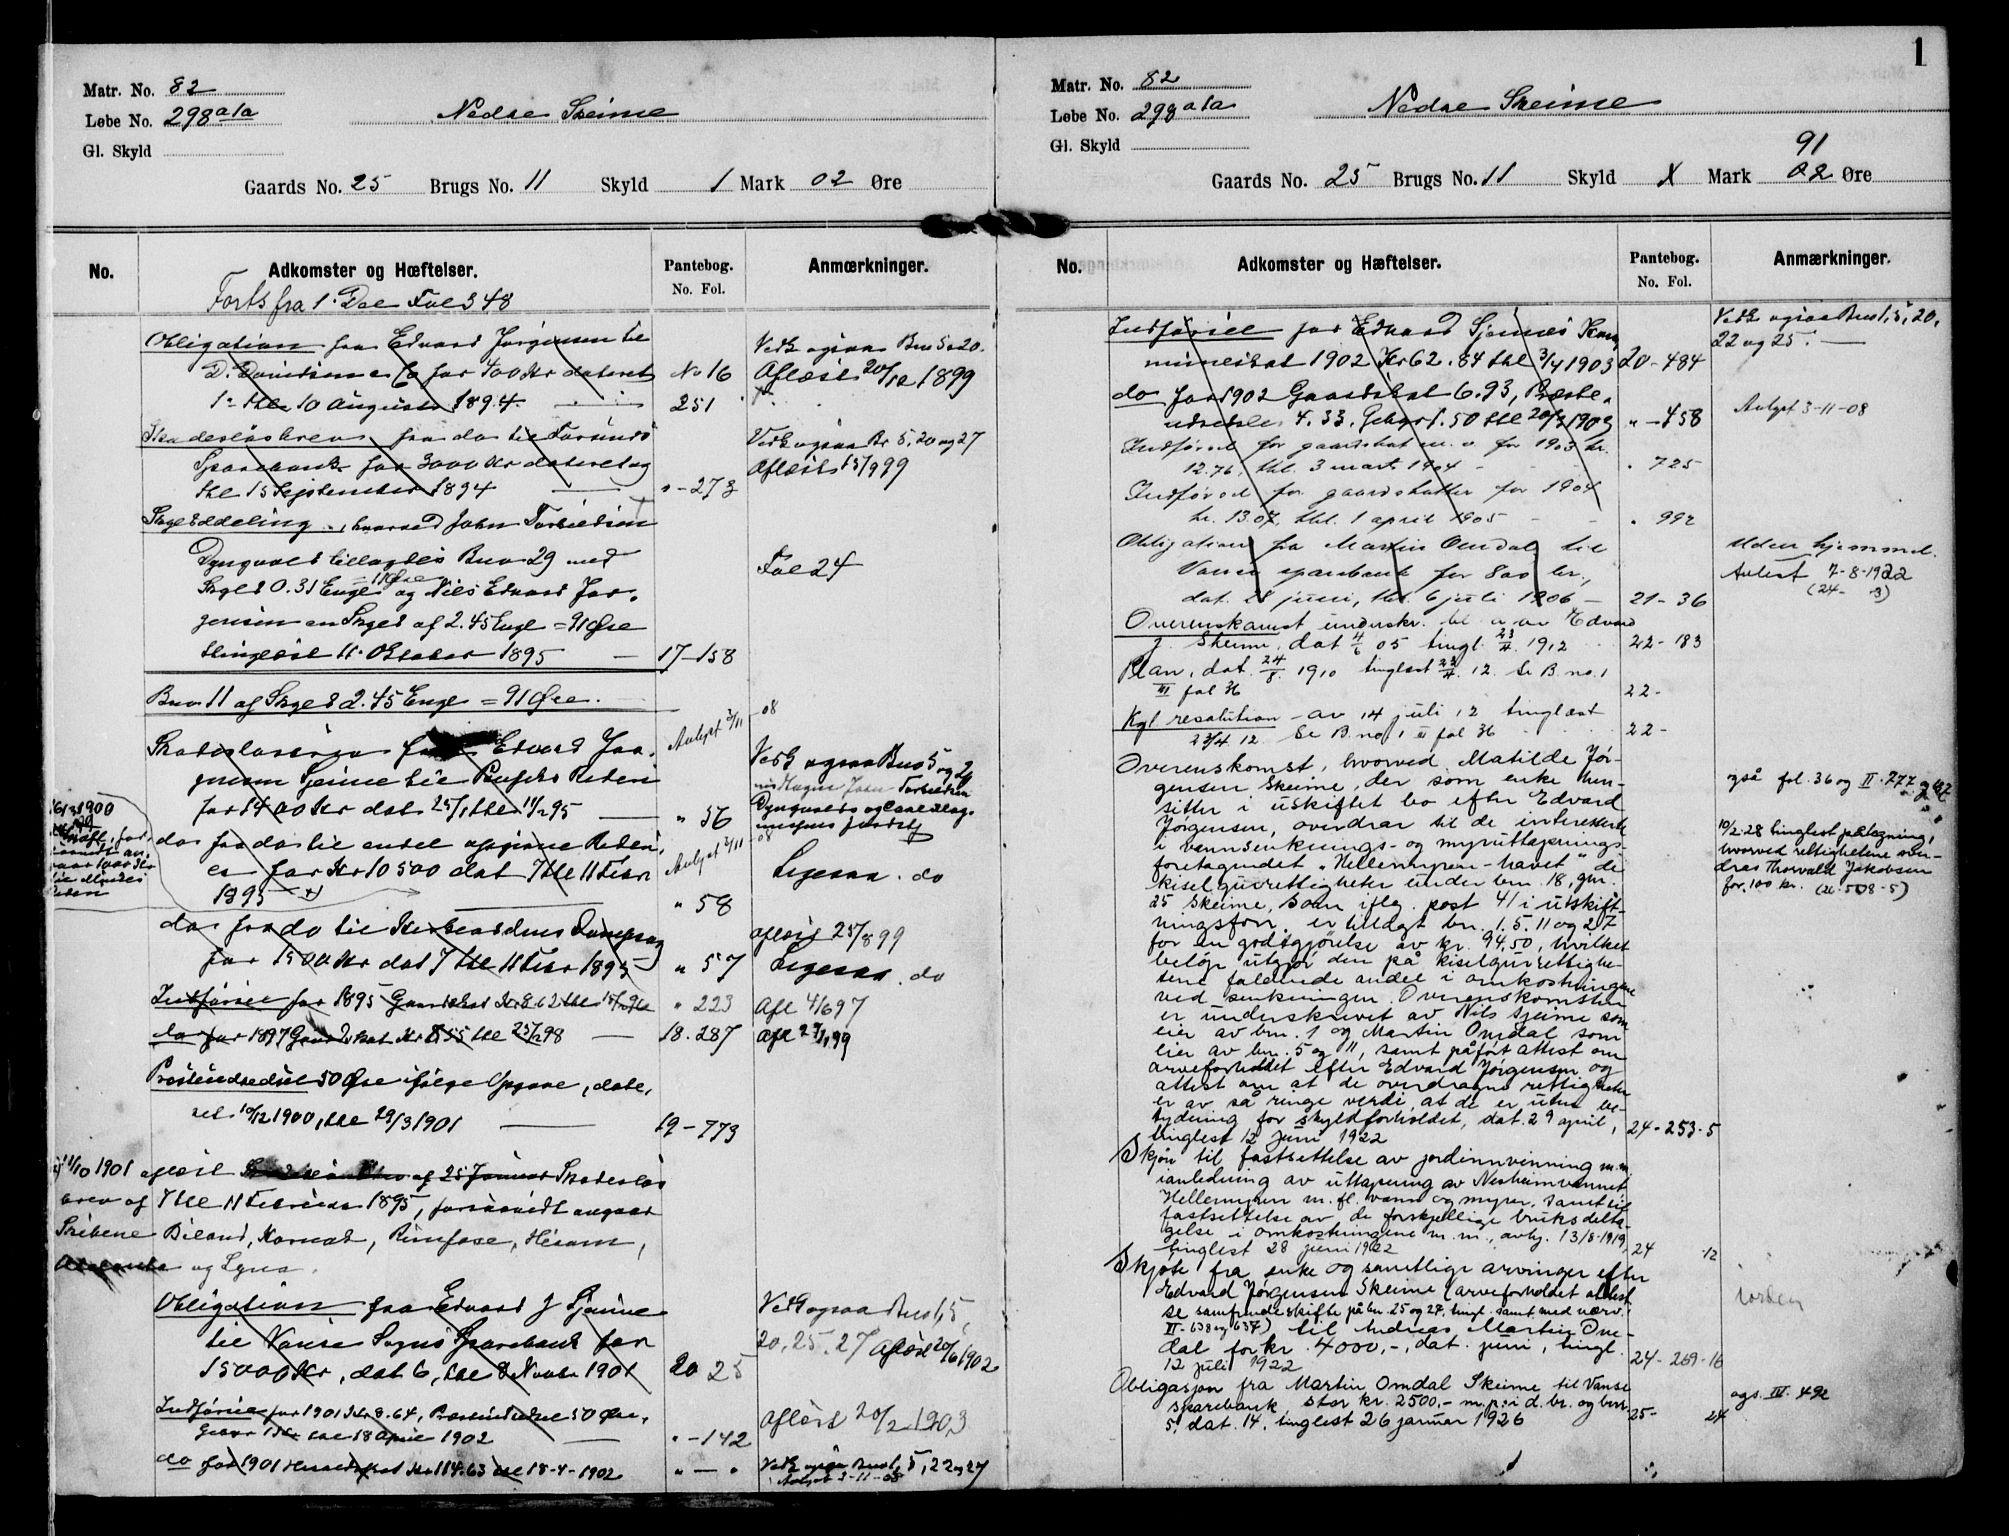 Matr. No. 82
Løbe No. 298 a1a
Nedre Skeime
Gl. Skyld
Gaards No. 25 Brugs No. 11 Skyld 1 Mark 02 Øre
No. Adkomster og Hæftelser. Pantebog. No. Fol. Anmærkninger.
Forts fra 1. Del Fol 348
Obligation fra Edvard Jørgensen til Vedk ogsaa Bno 5 20.
D. Davidsen & Co for 400 Kr dateret No 16 Aflæst 20/12 1899
thl 10 August 1894. 251
Skadesløsbrev fra do til Farsunds Vedk ogsaa Br 5, 20 og 27
Sparebank for 3000 Kr dateret og Aflæst 15/9 99
thl 15 September 1894 " - 273
Skylddeling, hvorved John Tobiesen
Dyngvold tillagdes Bno 29 med Fol 24
Skyld 0.31 Engl = 11 Øre og Nils Edvard Jør-
gensen en Skyld af 2.45 Engl = 91 Øre
thinglæst 11. Oktober 1895 17-158
Bno 11 af Skyld 2.45 Engl = 91 Øre.
Skadesløsbrev fra Edvard Jør- Avlyst 3/11 08
gensen Sjeime til Rederi Vedk ogsaa Bno 5 og
for 1400 Kr dat 25/1 thl 11/2 95 " 56
do fra do til andel Rederi Avlyst 3/11 08
for Kr 10500 dat 7 thl 11 Febr Ligesaa do
1895 " 58
do fra do til Dampsag Aflæst 25/8 99
for 1500 Kr dat 7 thl 11 Febr 1895 " 57 Ligesaa do
Indførsel for 1895 Gaardskat Kr 8.62 thl " 223 Afl 4/6 97
do for 1897 Gaardskat Kr 8.55 thl 25/2 98 18. 287 Afl 27/1 99
Presteudredsel 50 Øre ifølge Opgave, date-
ret 10/12 1900, thl 29/3 1901 19-773
11/10 1901 aflæst af 25 Januar Skadesløs
brev af 7 thl 11 Februar 1895, forsaavidt angaar
Skibene Biland, Kornat, Rimfaxe,
og Lyna.
Obligation fra Edvard J Sjeime Vedk ogsaa Bno 1, 5,
til Vanse Sogns Sparebank for 20, 25, 27 Aflæst 20/6 1902
15000 Kr, dat 6, thl 8 Novbr 1901 20 25
Indførsel for 1901 Kr 8.64, Presteudredsel 50 Øre, Aflæst 20/2 1903
Gebyr 1 Kr thl 18 April 1902 " - 142
do for 1901 Herredsskat Kr 114.63 thl 18-4-1902 " - " Vedk ogsaa Bno 1, 5, 22 og 27
Avlyst 3-11-08
1
Matr. No. 82
Løbe No. 298 a1a
Nedre Skeime
Gl. Skyld
91
Gaards No. 25 Brugs No. 11 Skyld Mark 02 Øre
No. Adkomster og Hæftelser. Pantebog. No. Fol. Anmærkninger.
Indførsel for Edvard Sjeimes Kom- Vedk ogsaa Bno 1, 5, 20,
muneskat 1902 Kr 62.84 thl 3/4 1903 20-484 22 og 25.
do for 1902 Gaardskat 6.93, Preste-
udredsel 4.33, Gebyr 1.50 thl 20/3 1903 " - 458 Avlyst 3-11-08
Indførsel for gaardskat m. v. for 1903 kr.
12.76, thl. 3 mart 1904 " 725
Indførsel for gaardskatter for 1904
kr. 13.07, thl. 1 april 1905 " 992
Obligation fra Martin Omdal til Uden hjemmel.
Vanse sparebank for 800 kr., Avlest 7-8-1922
dat. 28 juni, thl. 6 juli 1906 21-36 (24- 3)
Overenskomst underskr. bl. a. av Edvard
J. Skeime, dat 4/6 05 tingl. 23/4 1912 22-183
Plan, dat. 24/8 1910 tinglæst 23/4 12. Se B. no. 1
III fol 36 22-
Kgl. resolution av 14 juli 12 tinglæst
23/4 12 Se B. no 1 fol 36 22-
Overenskomst, hvorved Matilde Jør-
gensen Skeime, der som enke hen- også fol. 36 og II. 277
sitter i uskiftet bo efter Edvard
Jørgensen, overdrar til de interesserte
i vannsenknings- og myruttapnings- 10/2-28 tinglest påtegning,
foretagendet "Hellemyren-havet" de hvorved rettighetene over-
kiselgurrettigheter under brn. 18, gnr. dras Thorvald Jakobsen
25 Skeime, som iflg. post 41 i utskift- for 100 kr. (26. 508-5)
ningsforr. er tildelt bn. 1, 5, 11 og 27
for en godtgjørelse av kr. 94,50, hvilket
beløp utgjør den på kiselgurrettighe-
tene faldende andel i omkostningene
ved senkningen. Overenskomsten
er underskrevet av Nils Sjeime som
eier av bn. 1 og Martin Omdal som
eier av bn. 5 og 11, samt påført attest om
arveforholdet efter Edvard Jørgensen og
attest om at de overdragne rettigheter
er av så ringe verdi at de er uten be-
tydning for skyldforholdet, dat. 29 april,
tinglest 12 juni 1922 24-253-5
Skjøn til fastsettelse av jordinnvinning m.m.
i anledning av uttapning av Nesheimvannet
Hellemyren m. fl. vann og myrer, samt til
fastsettelse av de forskjellige bruks delta-
gelse i omkostningene m. m., avhj. 13/8-1919,
tinglest 28 juni 1922 24 12
Skjøte fra enke og samtlige arvinger efter
Edvard Jørgensen Skeime (arveforholdet attest.
se samfrendeskifte på bn. 25 og 27, tingl. samt med nærv.
II-638 og 637) til Andreas Martin Om-
dal for kr. 4000,-, dat. juni, tingl.
12 juli 1922 24-269-16
Obligasjon fra Martin Omdal Skeime til Vanse
sparebank, stor kr. 2500,- m.p. i d. br. og brn. 25- 24 ogs. IV. 492
5, dat. 14, tinglest 26 januar 1926